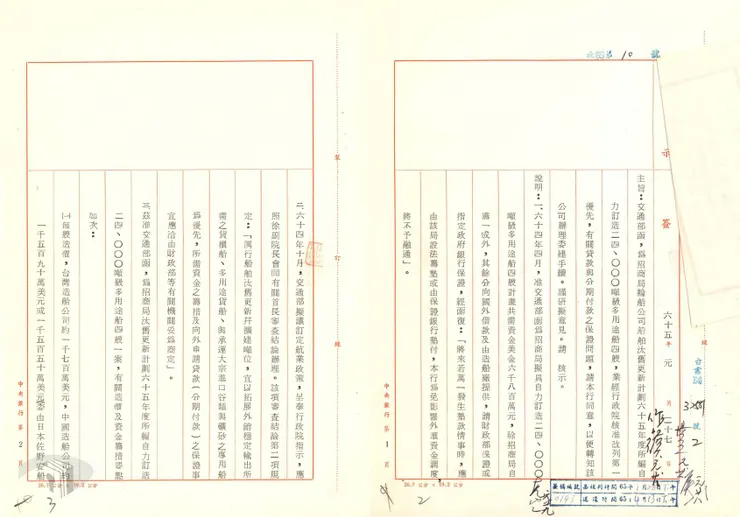 示
簽
六十五年 元 月 二十七
主旨：交通部函，為招商局輪船公司船舶汰舊更新計劃六十五年度所編自
力訂造二四、〇〇〇噸級多用途船四艘，業經行政院核准改列第一
優先，有關貸款與分期付款之保證問題，請本行同意，以便轉知該
公司辦理委建手續。謹研擬意見。請 核示。
說明：一、六十四年四月，准交通部函為招商局擬具自力訂造二四、〇〇〇
噸級多用途船四艘計畫共需資金美金六千八百萬元，除招商局自
籌一成外，其餘分向國外借款及由造船廠提供，請財政部保證或
指定政府銀行保證，經函復：「將來若萬一發生墊款情事時，應
由該局設法籌墊或由保證銀行墊付，本行為免影響外匯資金調度
將不予融通」。
中央銀行 第 1 頁
2
裝
訂
線
二、六十四年十月，交通部擬議訂定航業政策，呈奉行政院指示，應
照徐副院長會同有關首長審查結論辦理。該項審查結論第二項規
定：「厲行船舶汰舊更新并擴建噸位，宜以拓展外銷穩定輸出所
需之貨櫃船、多用途貨船、與承運大宗進口谷類與礦砂之專用船
為優先，所需資金之籌措及向外申請貸款（分期付款）之保證事
宜應洽由財政部等有關機關妥為商定」。
三、茲准交通部函，為招商局汰舊更新計劃六十五年度所編自力訂造
二四、〇〇〇噸級多用途船四艘一案，有關造價及資金籌措要點
如次：
㈠每艘造價，台灣造船公司約一千七百萬美元，中國造船公司約
一千五百九十萬美元或一千五百五十萬美元委由日本佐野安船
中央銀行 第 2 頁
3